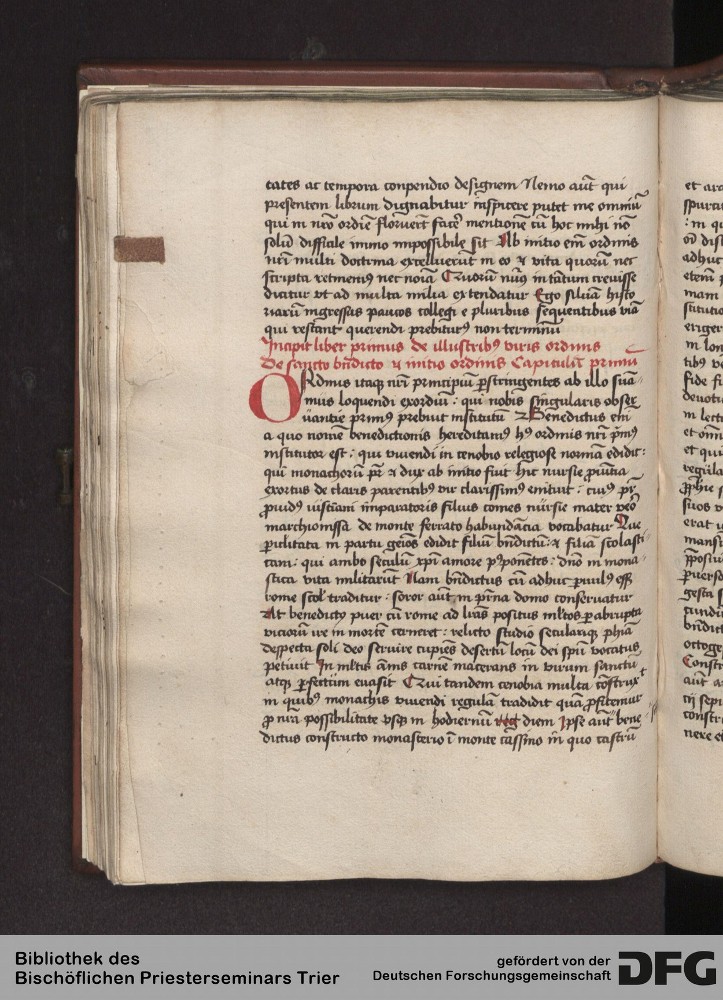 tates ac tempora conpendio designem Nemo aut̄ qui
presentem librum dignabitur inspicere putet me omniū
qui in nr̄o ordiē floruert̄ facē mentionē cū hoc mihi nō
solū difficile immo impossibile sit Ab initio em̄ ordinis
nr̄i multi doctrina excelluerūt in eo ⁊ vita quorū nec
scripta retinemꝰ nec noīa Quorū nūꝰ in tātum creuisse
dicatur vt ad multa milia extendatur Ego siluā histo
riarū ingressus paucos collegi e pluribus sequentibus viā
qui restant querendi prebiturꝰ non terminū
Incipit liber primus de illustribꝰ viris ordinis
De sancto bn̄dicto ⁊ initio ordinis Capitulū primū
ORdinis itaqꝫ nr̄i principiū ꝑstringentes ab illo sum̄a
mus loquendi exordiū : qui nobis singularis obser
uantie primꝰ prebuit institutū Benedictus em̄
a quo nomē benedictionis hereditamꝰ hꝰ ordinis nr̄i pͥmꝰ
institutor est : qui viuendi in cenobio religiose normā edidit :
qui monachorū pr̄ ⁊ dux ab initio fuit hic nursie ꝓuītia
exortus de claris parentibꝰ vir clarissimꝰ enituit : cuiꝰ pr̄
ꝓpidꝰ iustīani imparatoris filius comes nursie mater v̄o
marchionissa de monte ferrato habundācia vocabatur Que
ꝑclitata in partu geīos edidit filiū bn̄dictū : ⁊ filiā scolasti
cam : qui ambo seculū xp̄i amore pꝰponētes : dn̄o in mona
stica vita militarūt Nam bn̄dictus cū adhuc puulꝰ eēt
rome scol' traditur : soror aut̄ in pr̄na domo conseruatur
At benedictꝰ puer cū rome ad lr̄as positus ml̄tos ꝑ abrupta
viciorū ire in mortē cerneret : relicto studio seculariqꝫ phīa
despecta soli deo seruire cupiēs desertū locū dei spū vocatus
petiuit In ml̄tis an̄is carnē macerans in virum sanctū
atqꝫ ꝑfectum euasit Qui tandem cenobia multa cōstruxit
in quibꝰ monachis viuendi regulā tradidit quā ꝓfitemur
ꝓ nr̄a possibilitate vsqꝫ in hodiernū diem Ipse aut̄ bene
dictus constructo monasterio ī monte cassino in quo castrū
Bibliothek des
Bischöflichen Priesterseminars Trier
gefördert von der
Deutschen Forschungsgemeinschaft
DFG